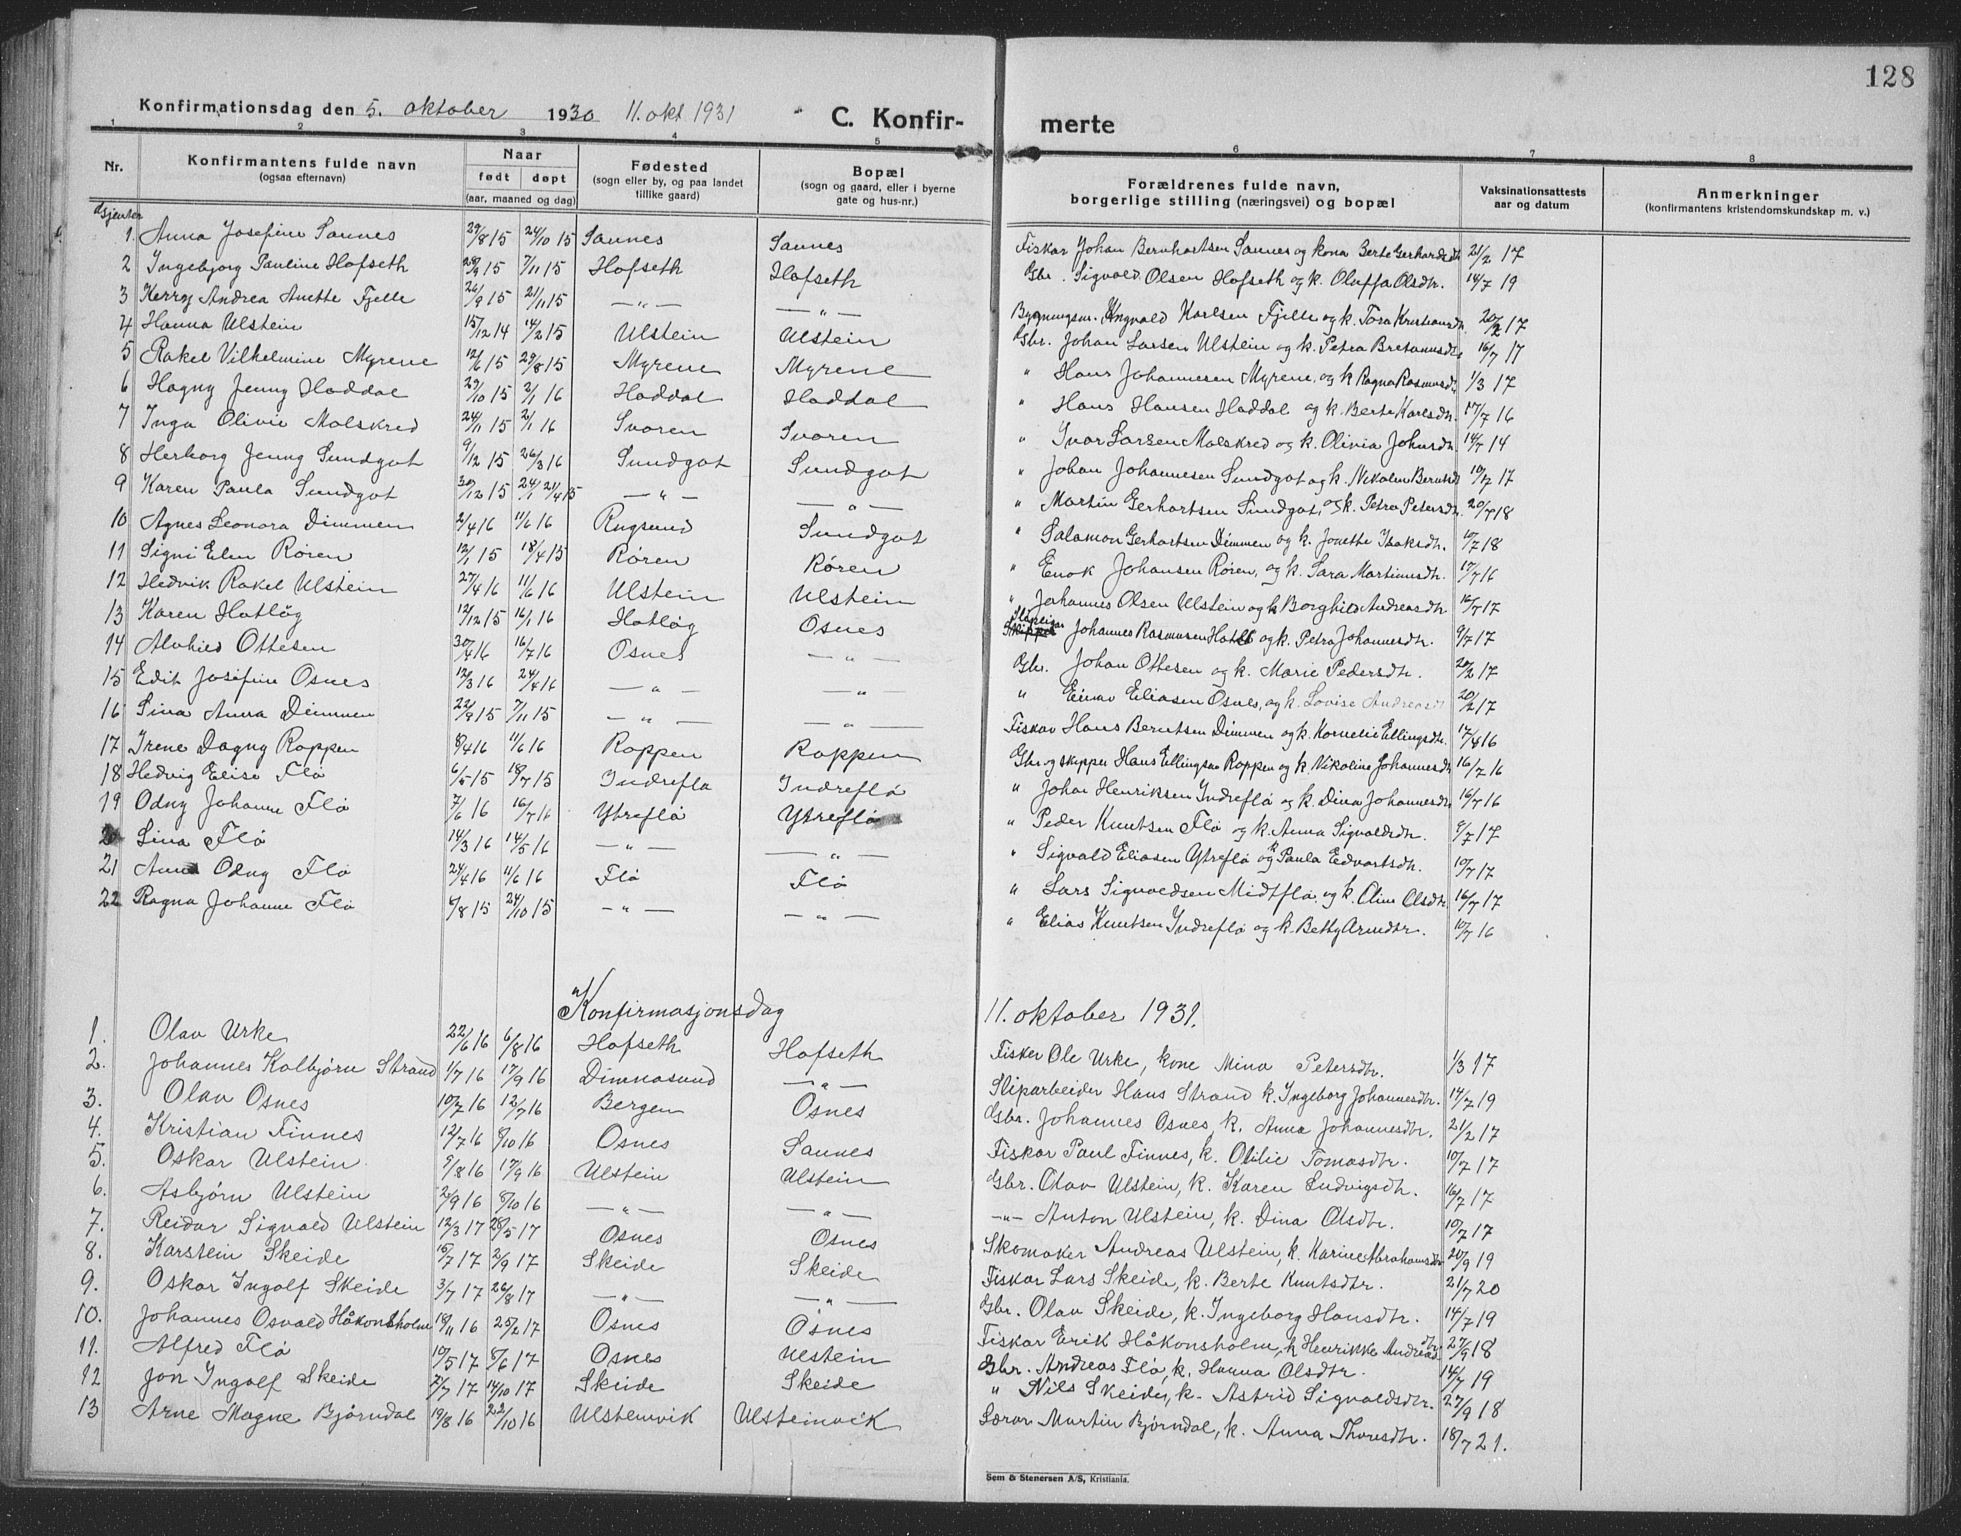 128
Konfirmationsdag den 5. oktober 1930 11. okt 1931 C. Konfir- merte
1 2 3 4 5 6 7 8
Nr. Konfirmantens fulde navn (ogsaa efternavn) Naar født døpt (aar, maaned og dag) Fødested (sogn eller by, og paa landet tillike gaard) Bopæl (sogn og gaard, eller i byerne gate og hus-nr.) Forældrenes fulde navn, borgerlige stilling (næringsvei) og bopæl Vaksinationsattests aar og datum Anmerkninger (konfirmantens kristendomskundskap m. v.)
Gjenter
1. Anna Josefine Sannes 29/8 15 24/10 15 Sannes Sannes Fiskar Johan Bernhartsen Sannes og kona Berte Gerhardsdtr 21/2 17
2 Ingebjorg Pauline Hofseth 28/9 15 7/11 15 Hofseth Hofseth Gbr. Sigvald Olsen Hofseth og k. Oluffa Olsdtr. 14/7 19
3 Kerry Andrea Anette Fjelle 26/9 15 21/11 15 — " — — " — Bygningsm. Yngvald Karlsen Fjelle og k. Tora Kristiansdtr. 20/2 17
4 Hanna Ulstein 15/12 14 14/2 15 Ulstein Ulstein Gbr. Johan Larsen Ulstein og k. Petra 16/7 17
5 Rakel Vilhelmine Myrene 12/6 15 29/8 15 Myrene Myrene " Hans Johannesen Myrene, og k Ragna Rasmusdtr 1/3 17
6 Hagny Jenny Haddal 29/10 15 2/1 16 Haddal Haddal " Hans Hansen Haddal og k. Berte Karlsdtr. 17/7 16
7 Inga Olivie Malskred 24/11 15 2/1 16 Svoren Svoren " Ivar Larsen Malskred og k. Olivia Johnsdtr 14/7 14
8 Herborg Jenny Sundgot 9/12 15 26/3 16 Sundgot Sundgot " Johan Johannesen Sundgot og k. Nikoline Berntsdtr 10/7 17
9 Karen Paula Sundgot 30/12 15 24/1 21/4 15 — " — — " — " Martin Gerhartsen Sundgot, og k. Petra Petersdtr. 20/7 18
10 Agnes Leonora Dimmen 2/4 16 11/6 16 Rugsund Sundgot " Salamon Gerhartsen Dimmen og k. Jonette Isaksdtr. 10/7 18
11 Signi Elen Røren 12/1 15 18/4 15 Røren Røren " Enok Johansen Røren, og k. Sara Martinusdtr. 17/7 16
12 Hedvik Rakel Ulstein 27/4 16 11/6 16 Ulstein Ulstein " Johannes Olsen Ulstein og k Borghild Andreasdtr 16/7 17
13 Karen Hatløg 12/12 15 16/1 16 Hatløg Osnes Skipper Johannes Rasmusen Hatl og k. Petra Johannesdtr. 9/7 17
14 Alvhild Ottesen 30/4 16 16/7 16 Osnes — " — Gbr. Johan Ottesen og k. Marie Pedersdtr. 20/2 17
15 Edit Josefine Osnes 12/3 16 24/4 16 — " — — " — " Einar Eliasen Osnes, og k. Lovise Andreasdtr 20/2 17
16 Sina Anna Dimmen 22/9 15 7/11 15 — " — — " — Fiskar Hans Berntsen Dimmen og k. Kornelie Ellingsdtr. 17/4 16
17 Irene Dagny Roppen 8/4 16 11/6 16 Roppen Roppen Gbr. og skipper Hans Ellingsen Roppen og k. Nikoline Johannesdtr 16/7 16
18 Hedvig Elise Flø 6/5 15 18/7 15 Indreflø Indreflø " Johan Henriksen Indreflø og k. Dina Johannesdtr 16/7 16
19 Odny Johanne Flø 7/6 16 16/7 16 Ytreflø Ytreflø " Peder Knutsen Flø og k. Anna Sigvaldsdtr. 9/7 17
20 Sina Flø 14/3 16 14/5 16 — " — — " — " Sigvald Eliasen Ytreflø og k Paula Edvartsdtr. 10/7 17
21 Anna Odny Flø 24/4 16 11/6 16 Flø Flø " Lars Sigvaldsen Midtflø, og k. Oline Olsdtr. 16/7 17
22 Ragna Johanne Flø 8/8 15 24/10 15 — " — — " — " Elias Knutsen Indreflø og k. Betty Arendtr. 10/7 16
Konfirmasjonsdag 11. oktober 1931.
1. Olav Urke 22/6 16 6/8 16 Hofseth Hofseth Fisker Ole Urke, kone Mina Petersdtr. 1/3 17
2. Johannes Kolbjørn Strand 1/7 16 17/9 16 Dimnasund — " — Sliparbeider Hans Strand k. Ingeborg Johannesdtr. 14/7 19
3. Olav Osnes 10/7 16 12/7 16 Bergen Osnes Gbr. Johannes Osnes, k. Anna Johannesdtr. 21/2 17
4. Kristian Finnes 12/7 16 8/10 16 Osnes Sannes Fiskar Paul Finnes, k. Otilie Tomasdtr. 10/7 17
5. Oskar Ulstein 9/8 16 17/9 16 Ulstein Ulstein Gbr. Olav Ulstein, k. Karen Ludvigsdtr. 16/7 17
6. Asbjørn Ulstein 2/9 16 8/10 16 — " — — " — — " — Anton Ulstein, k. Dina Olsdtr. 10/7 17
7. Reidar Sigvald Ulstein 12/3 17 28/5 17 Osnes Osnes Skomaker Andreas Ulstein, k. Karine Abrahamsdtr 20/9 19
8. Karstein Skeide 15/7 17 2/9 17 Skeide Skeide Fiskar Lars Skeide, k. Berte Knutsdtr. 21/7 20
9. Oskar Ingolf Skeide 3/7 17 26/8 17 — " — — " — Gbr. Olav Skeide, k. Ingeborg Hansdtr. 14/7 19
10. Johannes Osvald Håkonsholm 18/11 16 25/2 17 Osnes Osnes Fiskar Erik Håkonsholm, k Henrikke Andreasdtr 27/9 18
11. Alfred Flø 10/5 17 8/6 17 Osnes Ulstein Gbr. Andreas Flø, k. Hanna Olsdtr. 14/7 19
12 Jon Ingolf Skeide 7/7 17 14/10 17 Skeide Skeide " Nils Skeide, k. Astrid Sigvaldsdtr. 27/9 18
13 Arne Magne Bjørndal 19/8 16 22/10 16 Ulsteinvik Ulsteinvik Lærar Martin Bjørndal, k. Anna Thoresdtr. 18/7 21.
Sem & Stenersen A/S, Kristiania.